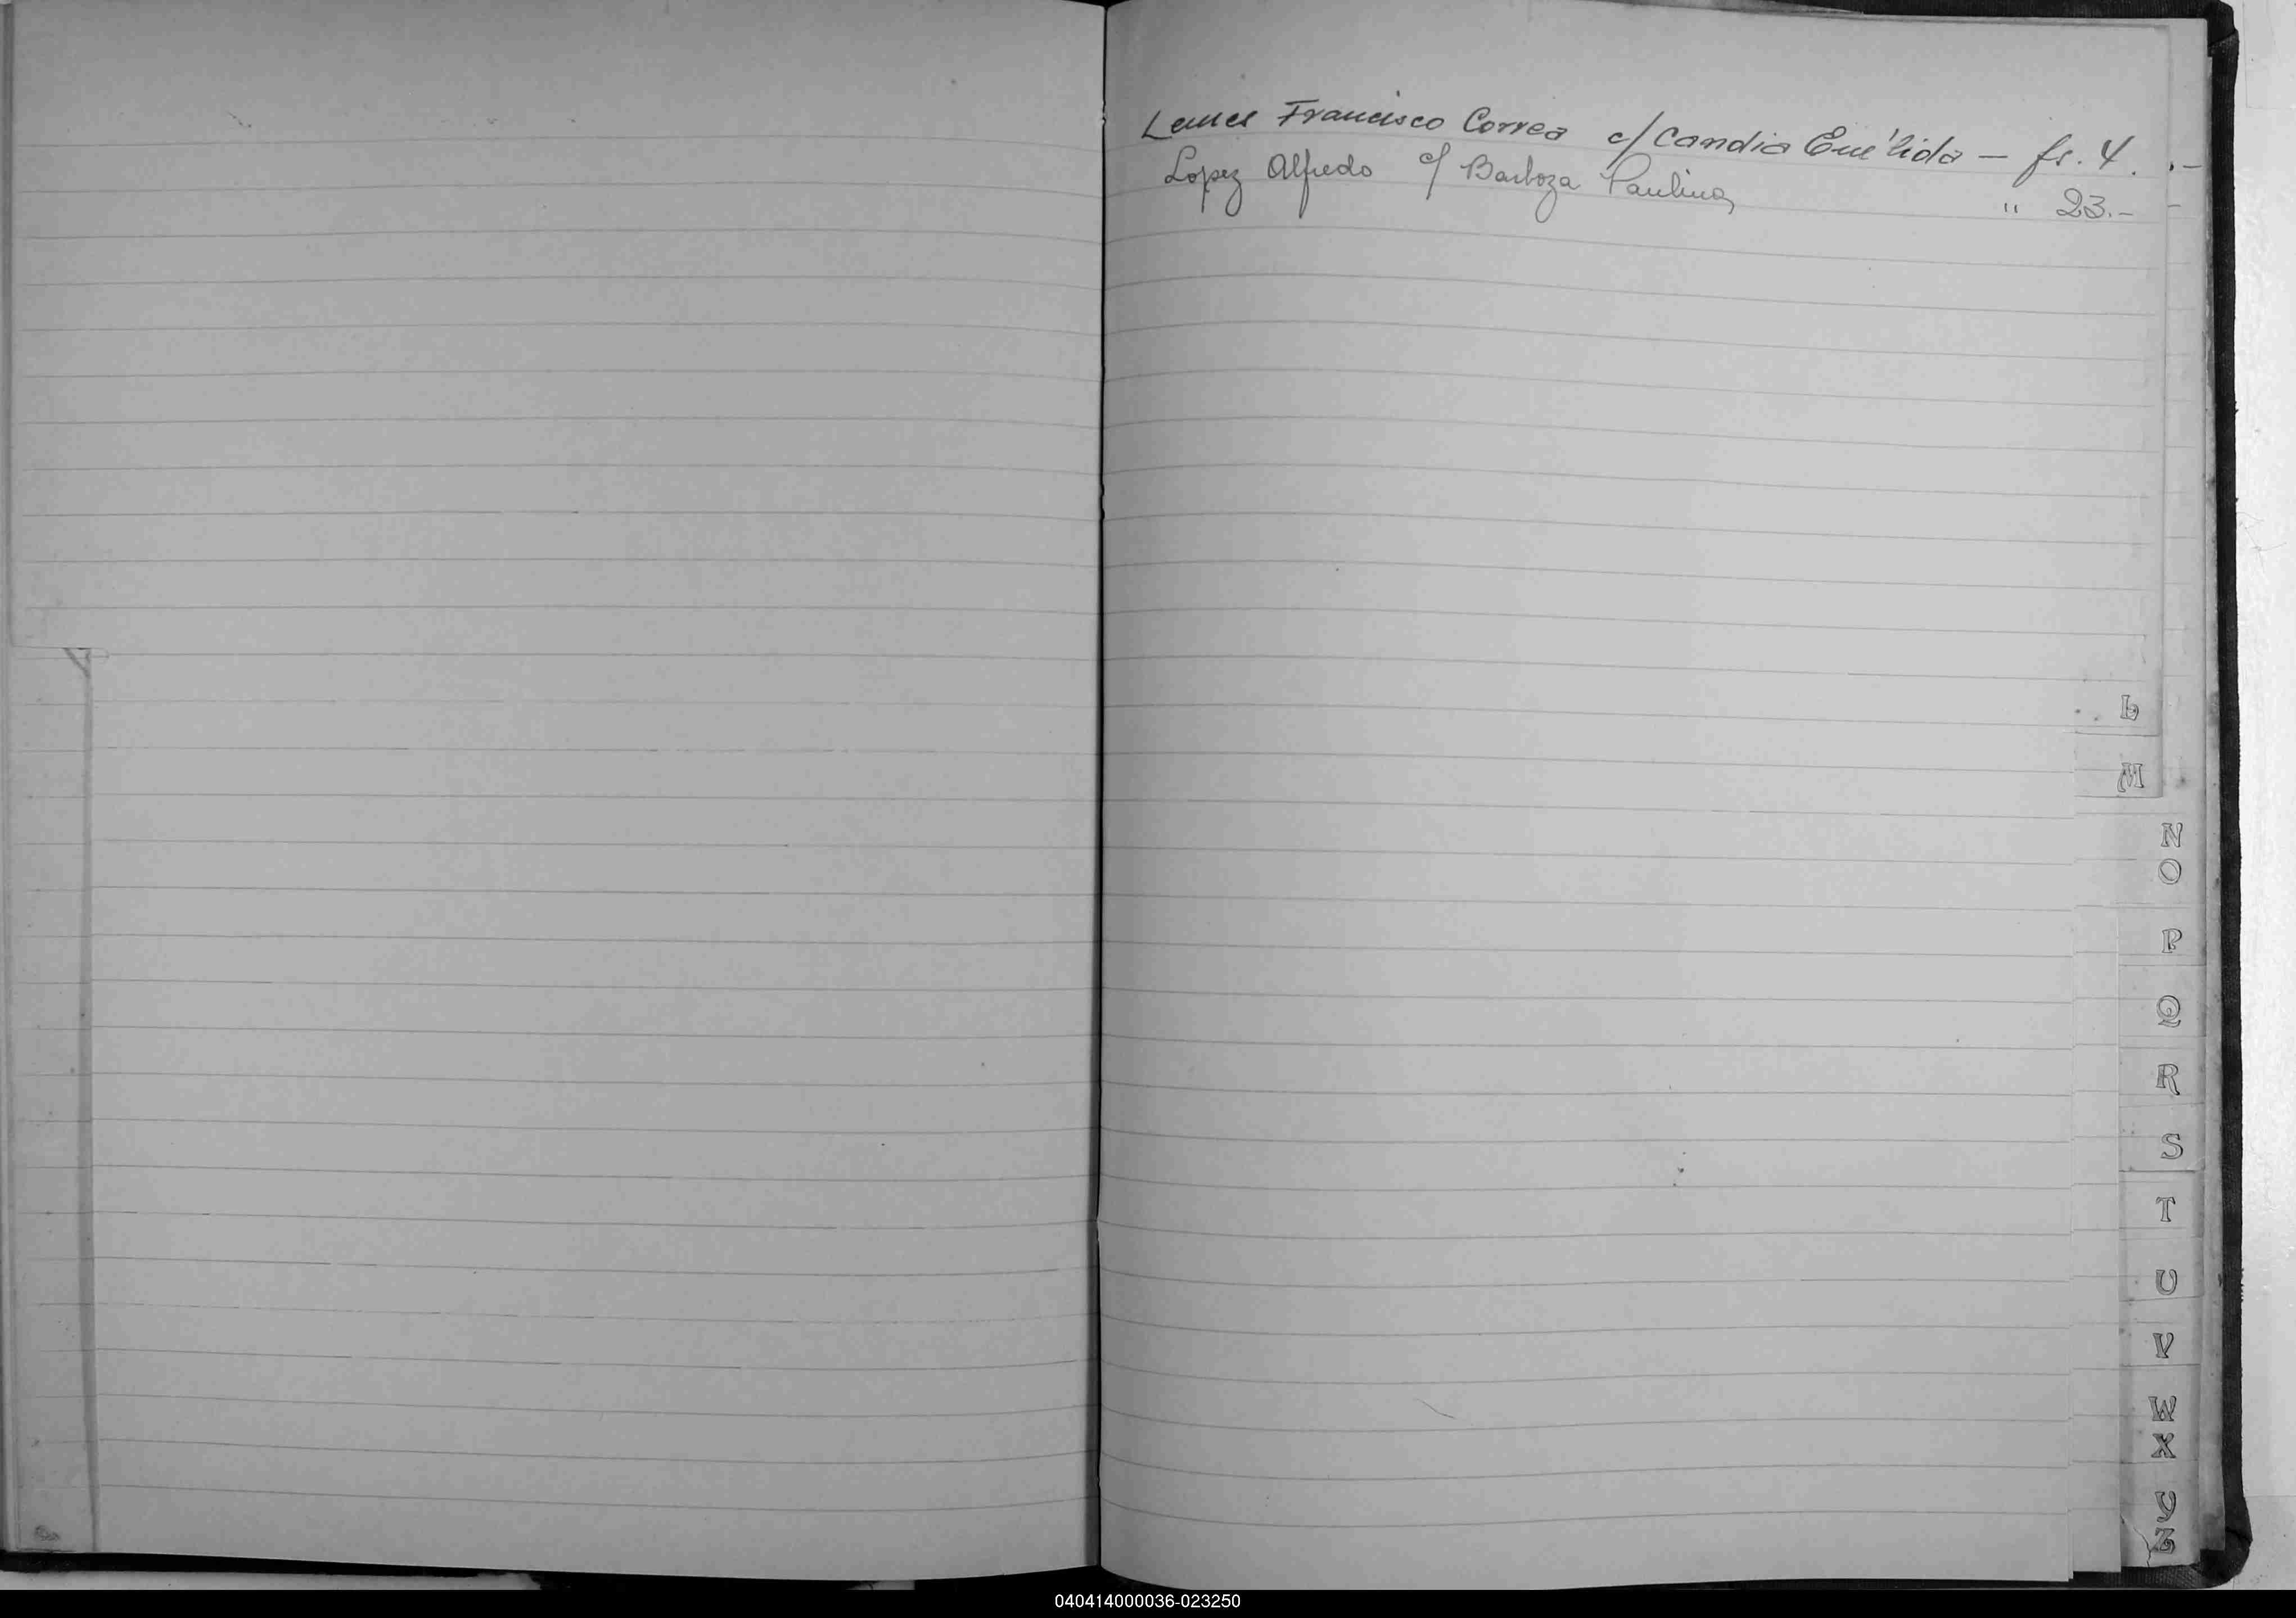 Lemes Francisco Correa c/ Candia Enélida — fs. 4. .-
Lopez Alfredo c/ Barboza Paulina " 23.- -
L
M
N
O
P
Q
R
S
T
U
V
W
X
Y
Z
040414000036-023250